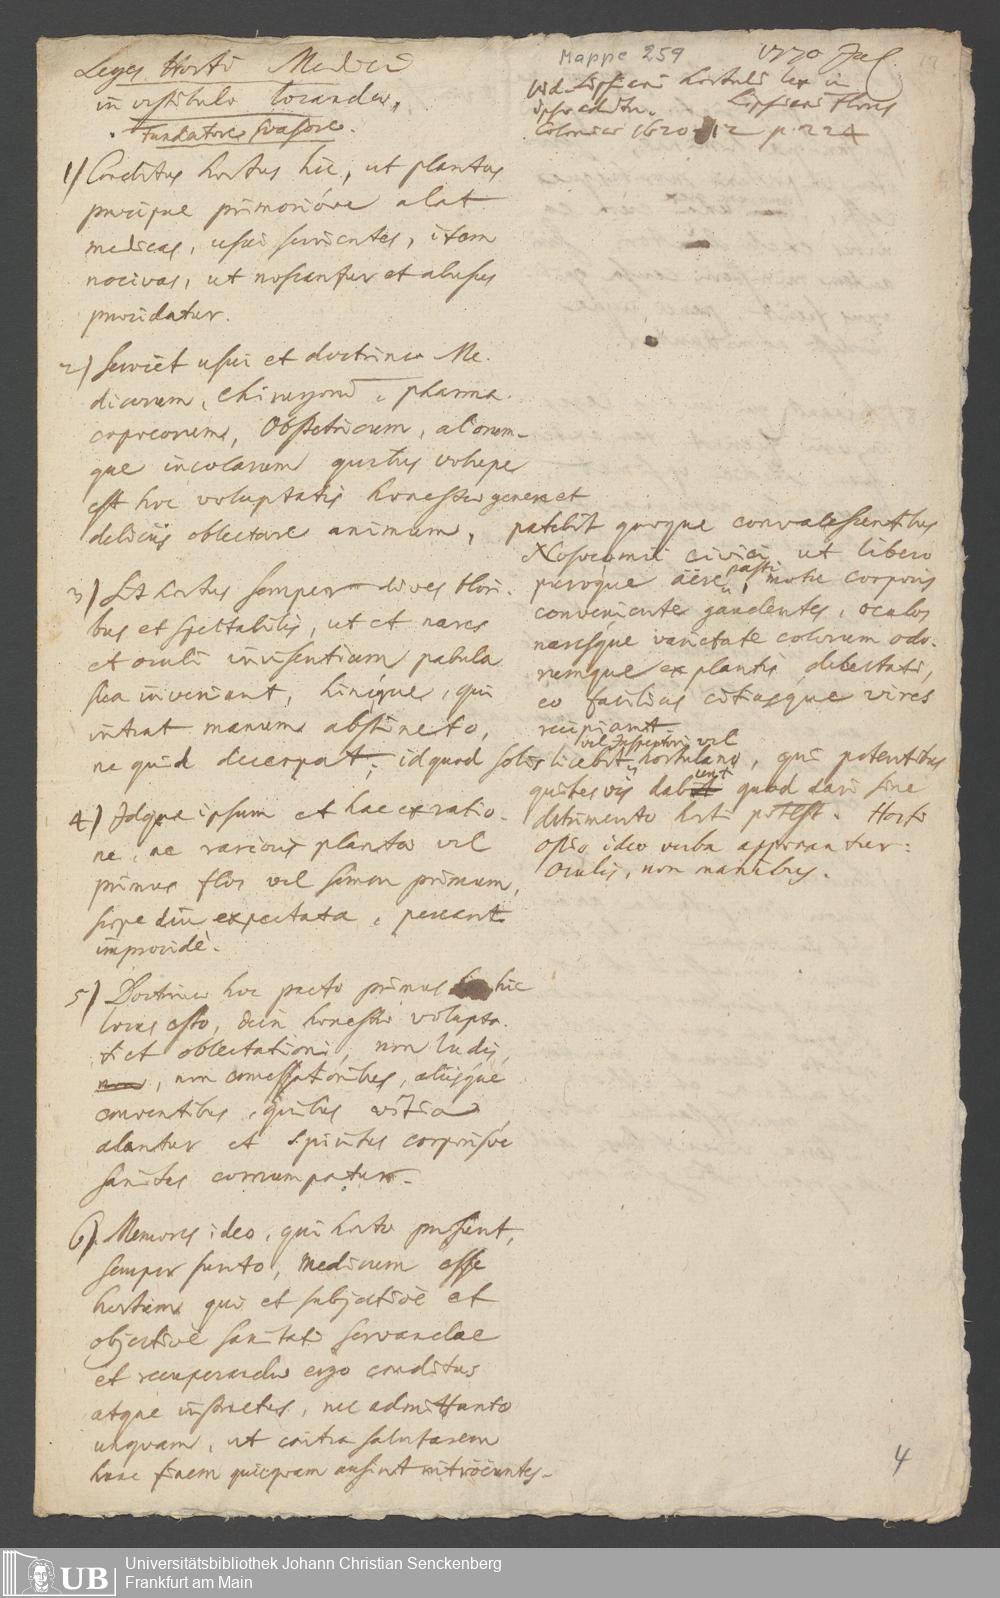 Mappe 259
1770 Jul
Leges Horti Medici
in vestibulo locandae,
Fundatore suasore.
vid. Lipsiani hortuli lex in
ipso aditu. Lipsiani Flores
Coloniae 1620 12 p. 224
1) Conditus hortus hic, ut plantas
praecipue primorióre alat
medicas, usui servientes, item
nocivas, ut noscantur et abusus
praecidatur.
2) Serviet usui et doctrinae Me-
dicorum, Chirurgorum, pharma-
copoeorum, Obstetricum, aliorum-
que incolarum quibus volupe
est hoc voluptatis honestae genere et
deliciis oblectare animum, patebit quoque convalescentibus
Nosocomii civici, ut libero
puroque aëre pasti, motu corporis
conveniente gaudentes, oculos
naresque varietate colorum odo-
rumque ex plantis delectati,
eo facilius citiusque vires
recipiant.
3) Sit hortus semper dives flori-
bus et spectabilis, ut et nares
et oculi invisentium pabula
sua inveniant, hincque, qui
intrat manum abstineto,
ne quid decerpat, id quod solis licebit vel Inspectori vel
hortulano, qui petentibus
quibusvis dabunt quod dari sine
detrimento horti potest. Horti
ostio ideo verba apponantur:
Oculis, non manibus.
4) Idque ipsum et hac ex ratio-
ne, ne rarioris plantae vel
primus flos vel semen primum,
saepe diu expectata, pereant
improvidè.
5) Doctrinae hoc pacto primus hic
locus esto, dein honestae volupta-
ti et oblectationi, non ludis,
non, non comessatoribus, aliisque
conventibus, quibus vitia
alantur et Spiritus corporisve
sanitas corrumpatur.
6) Memores ideo, qui horto praesunt,
semper sunto, medicum esse
hortum qui et subjectivè et
objectivè sanitati servandae
et recuperandae ergo conditus
atque instructus, nec admittunto
unquam, ut contra salutarem
hunc finem quicquam ausint introëuntes.
4
UB
Universitätsbibliothek Johann Christian Senckenberg
Frankfurt am Main